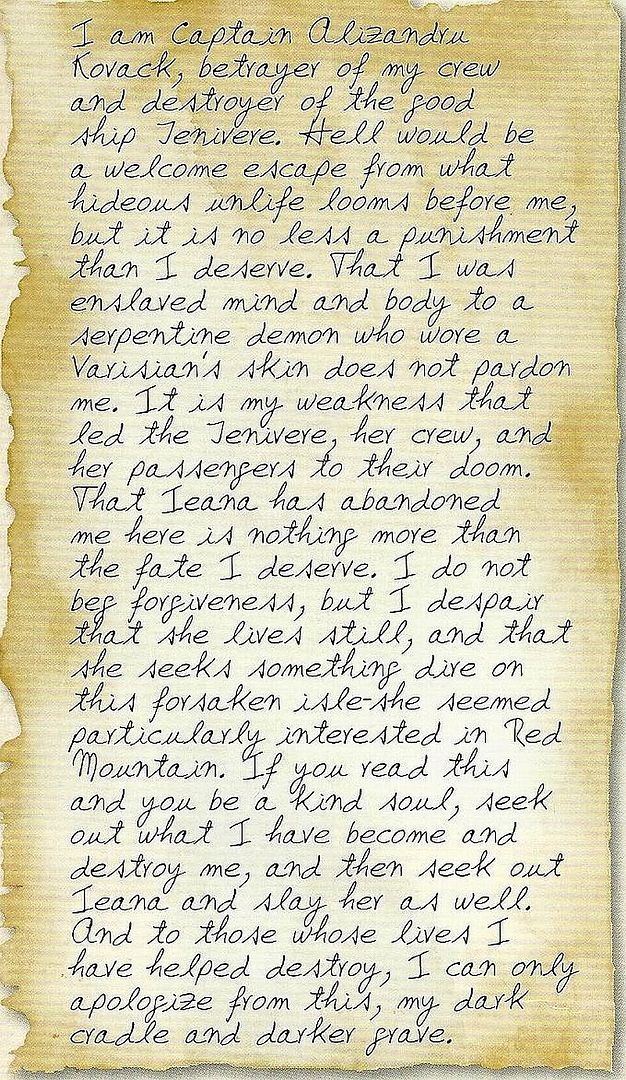 I am Captain Alizandru
Kovack, betrayer of my crew
and destroyer of the good
ship Jenivere. Hell would be
a welcome escape from what
hideous unlife looms before me,
but it is no less a punishment
than I deserve. That I was
enslaved mind and body to a
serpentine demon who wore a
Varisian's skin does not pardon
me. It is my weakness that
led the Jenivere, her crew, and
her passengers to their doom.
That Ieana has abandoned
me here is nothing more than
the fate I deserve. I do not
beg forgiveness, but I despair
that she lives still, and that
she seeks something dire on
this forsaken isle-she seemed
particularly interested in Red
Mountain. If you read this
and you be a kind soul, seek
out what I have become and
destroy me, and then seek out
Ieana and slay her as well.
And to those whose lives I
have helped destroy, I can only
apologize from this, my dark
cradle and darker grave.